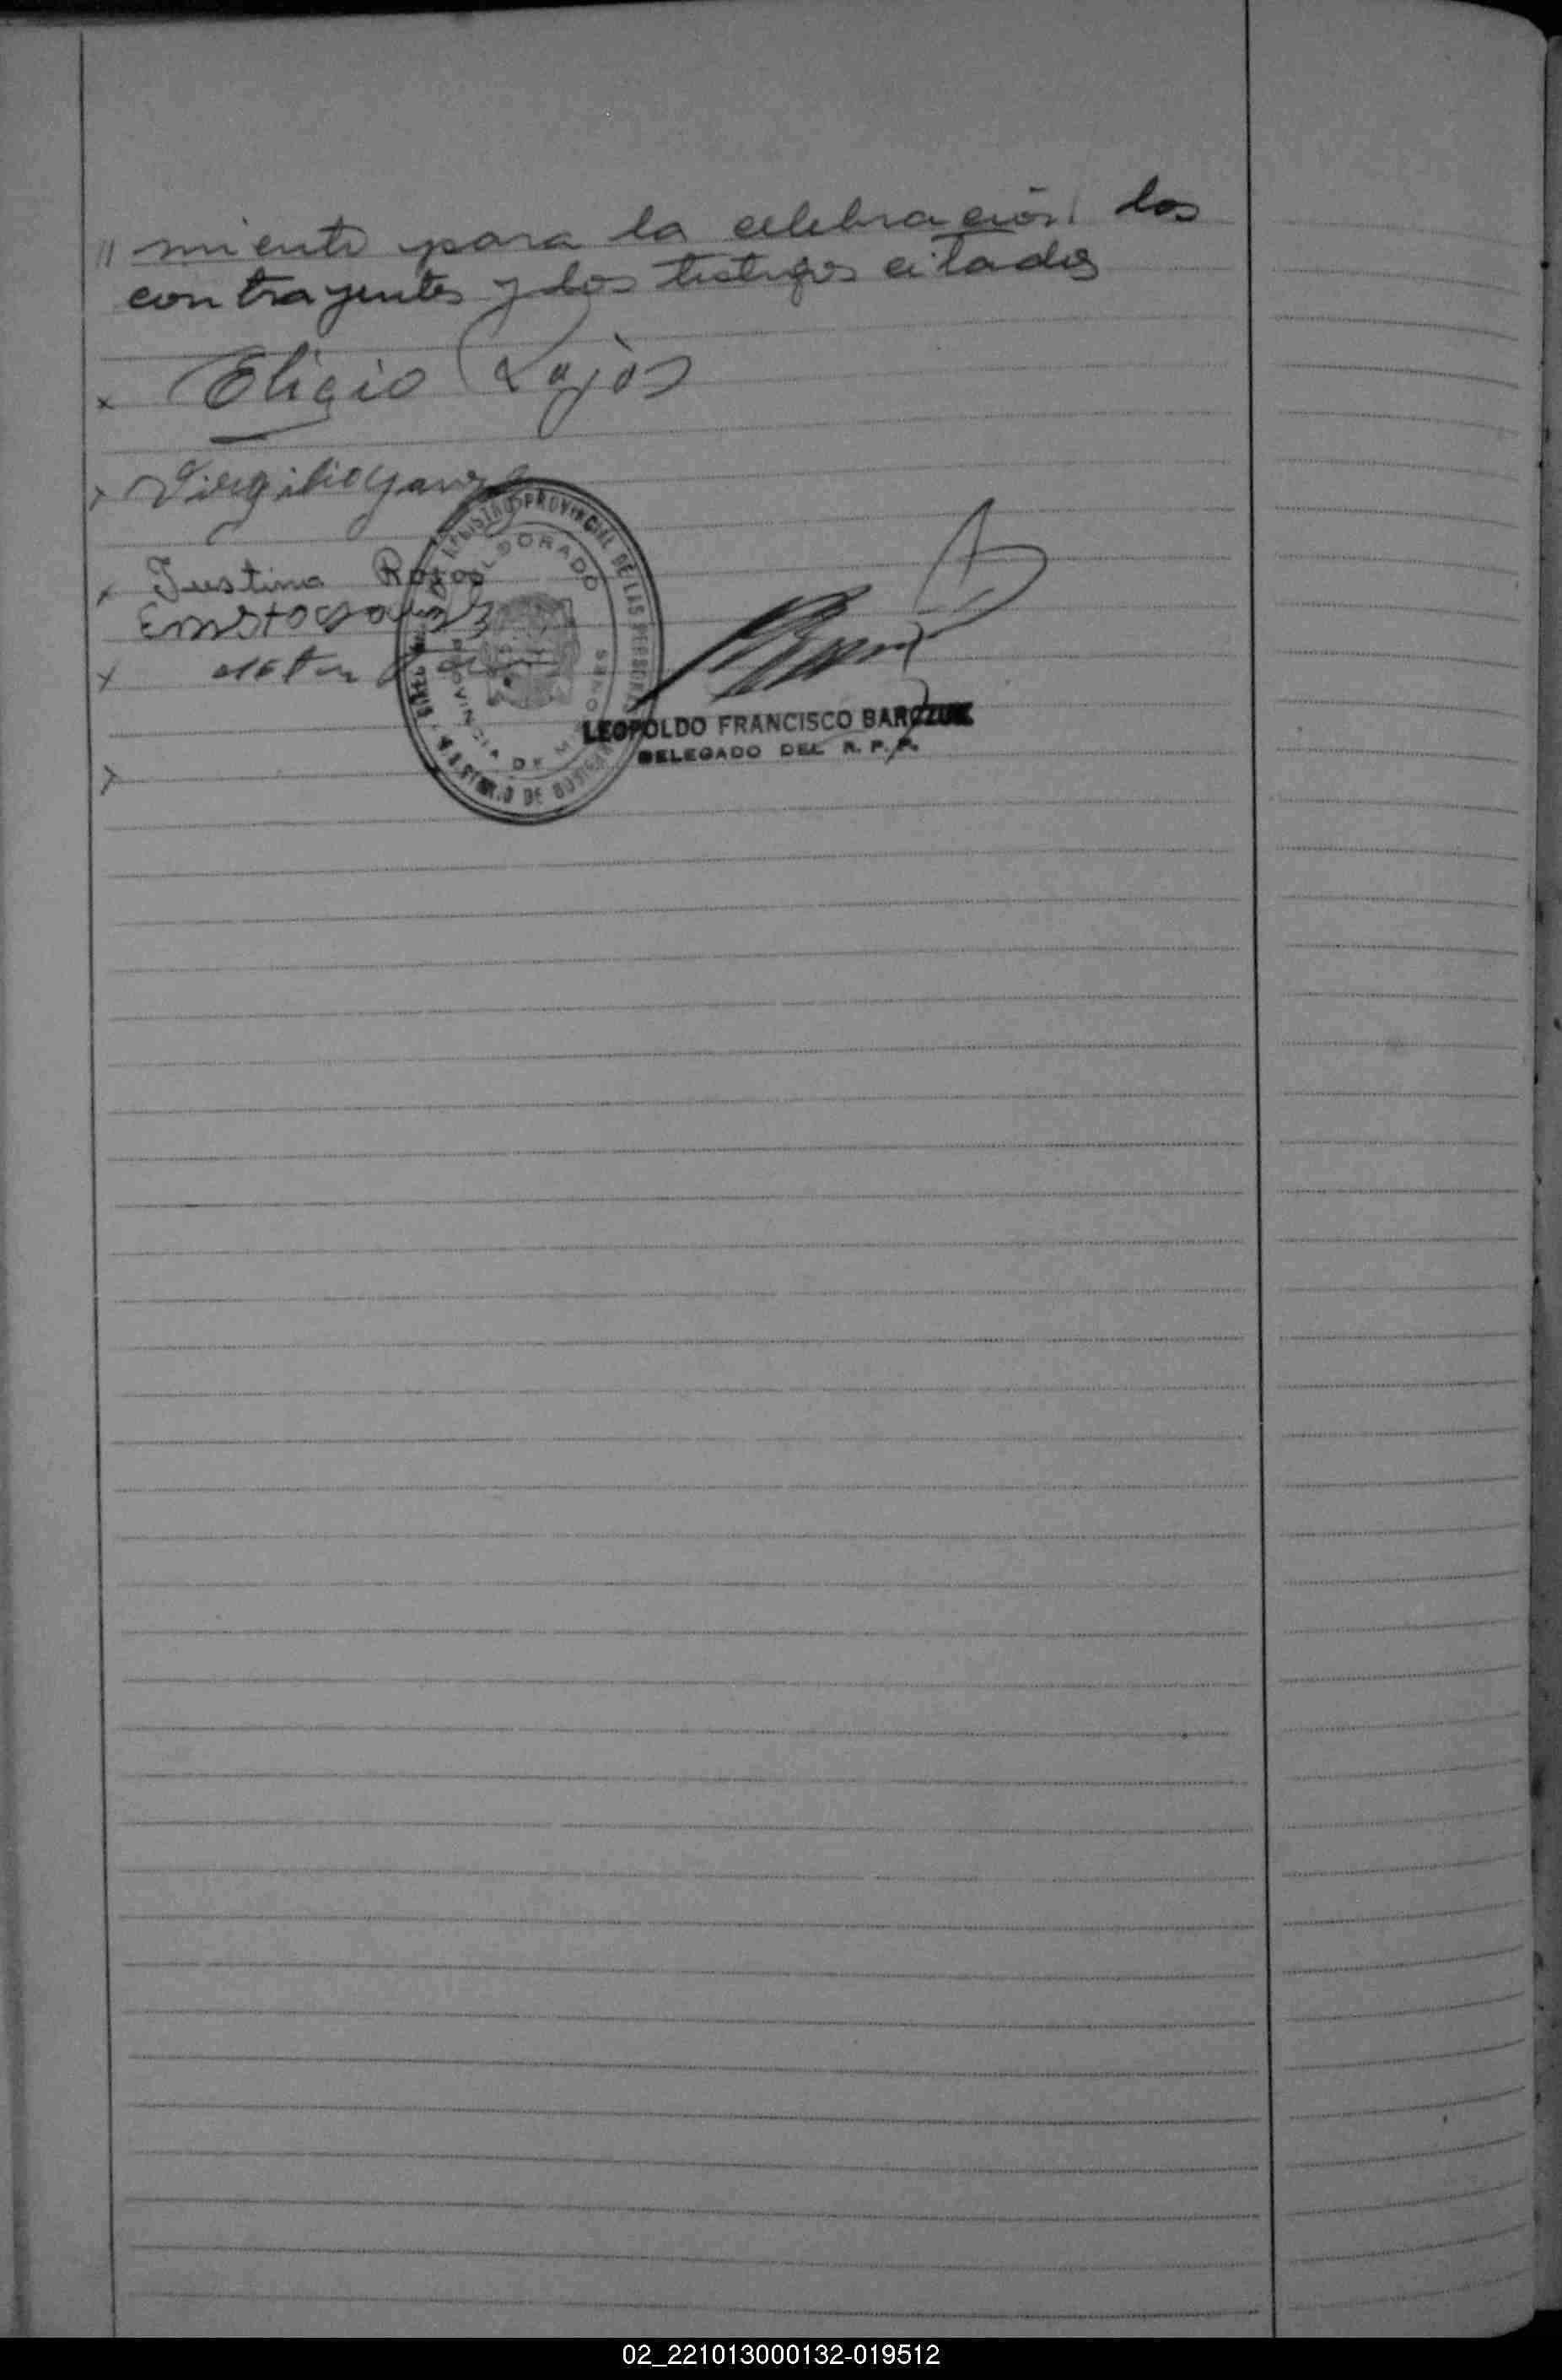 " miento para la celebración los
contrayentes y los testigos citados
x Eligio Rojas
x Virgilio
x Justina Rojas
x
REGISTRO PROVINCIAL DE LAS PERSONAS
ELDORADO
PROVINCIA DE MISIONES
LEOPOLDO FRANCISCO BARCZUK
DELEGADO DEL R. P. P.
02_221013000132-019512